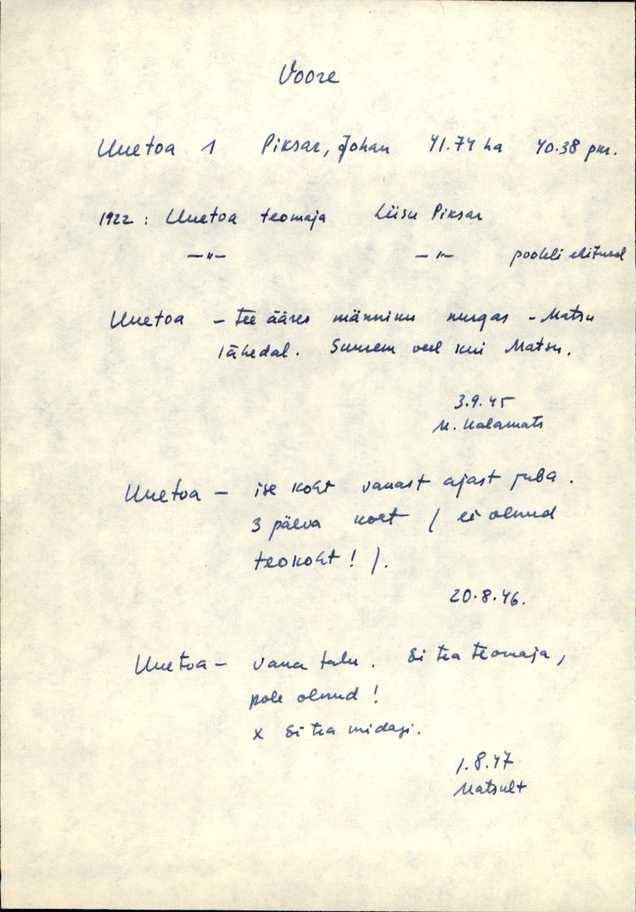 Voore
Uuetoa 1 Piksar, Johan 41.74 ha 40.38 pkr.
1922: Uuetoa teomaja Liisu Piksar
—"— —"— pooleli ehitusel
Uuetoa — tee ääres männiku nurgas — Matsu
lähedal. Suurem veel kui Matsu.
3.9.45
M. Kalamats
Uuetoa — ise koht vanast ajast juba.
3 päeva koht (ei olnud
teokoht!).
20.8.46.
Uuetoa — vana talu. Ei tea teomaja,
pole olnud!
x Ei tea midagi.
1.8.47
Matsult